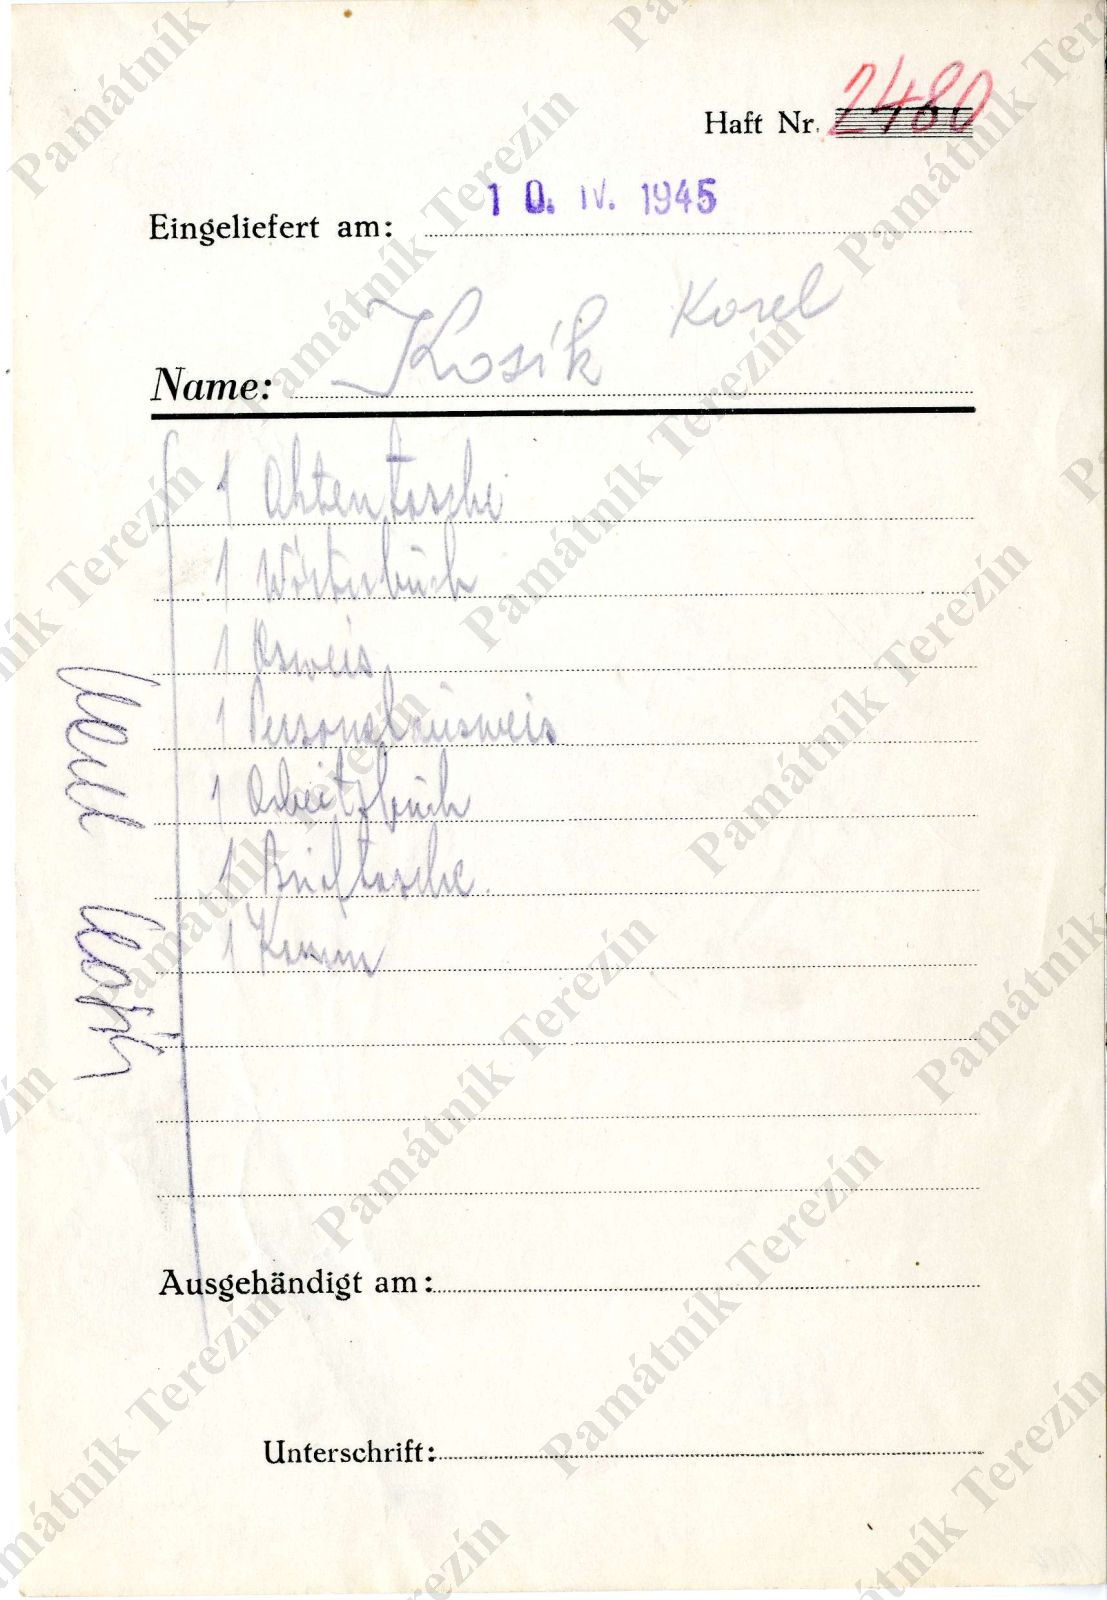 Haft Nr. 2480
Eingeliefert am: 10. IV. 1945
Name: Kosík Karel
1 Aktentasche
1 Wörterbuch
1 Osweis
1 Personalausweis
1 Arbeitsbuch
1 Brieftasche
1 Kamm
Ausgehändigt am:
Unterschrift:
Památník Terezín